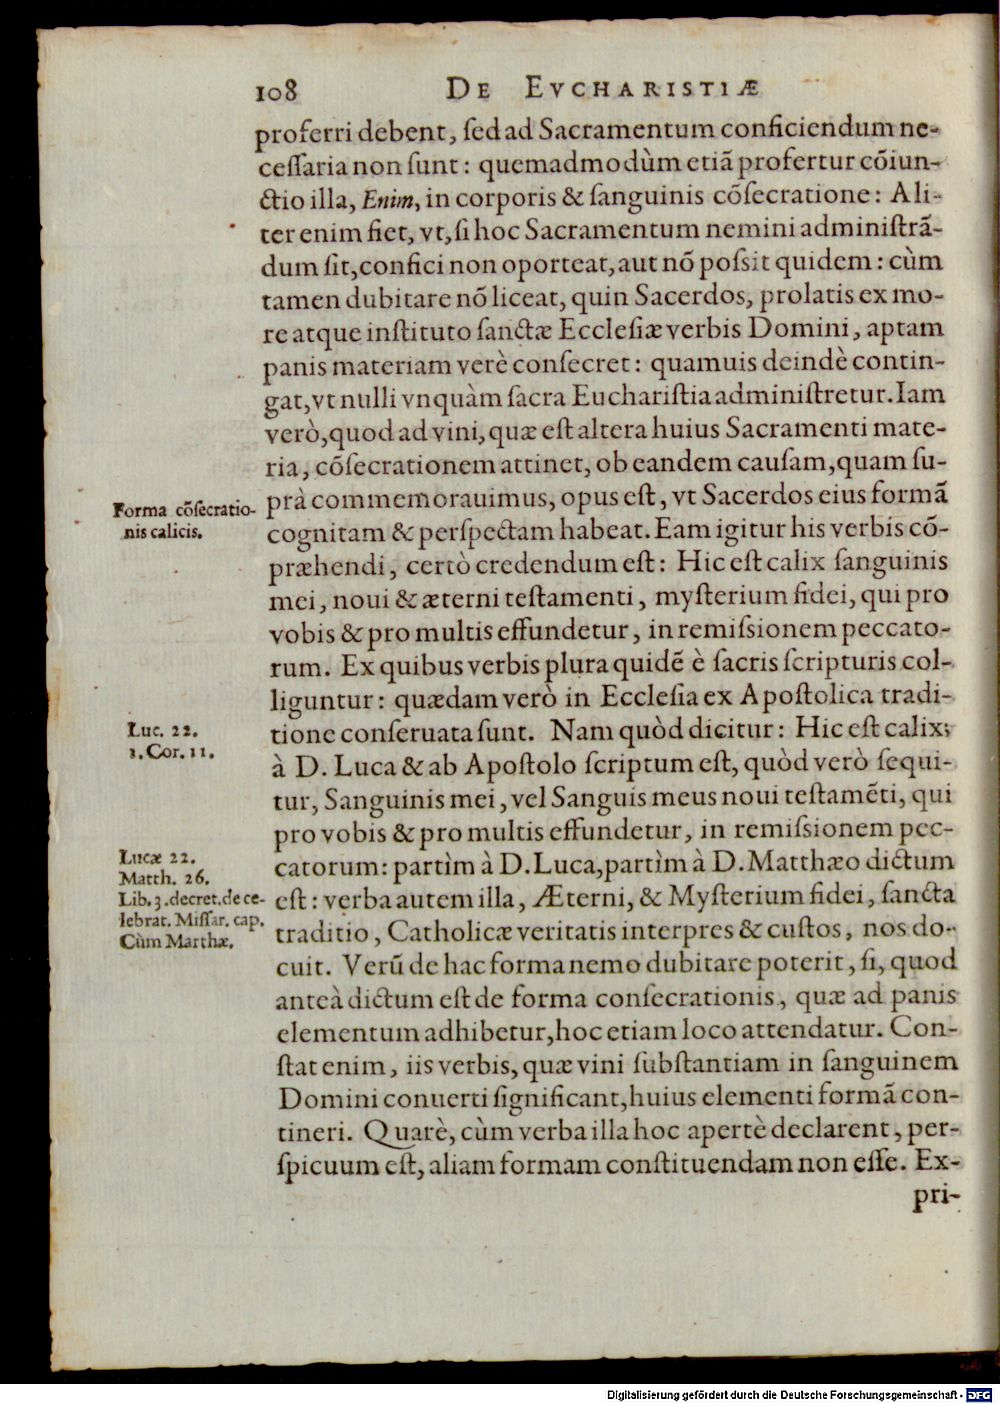 108 DE EVCHARISTIÆ
proferri debent, ſed ad Sacramentum conficiendum ne-
ceſſaria non ſunt: quemadmodùm etiã profertur cõiun-
ctio illa, Enim, in corporis & ſanguinis cõſecratione: Ali-
ter enim fiet, vt, ſi hoc Sacramentum nemini adminiſtrã-
dum ſit, confici non oporteat, aut nõ poſsit quidem: cùm
tamen dubitare nõ liceat, quin Sacerdos, prolatis ex mo-
re atque inſtituto ſanctæ Eccleſiæ verbis Domini, aptam
panis materiam verè conſecret: quamuis deindè contin-
gat, vt nulli vnquàm ſacra Euchariſtia adminiſtretur. Iam
verò, quod ad vini, quæ eſt altera huius Sacramenti mate-
ria, cõſecrationem attinet, ob eandem cauſam, quam ſu-
prà commemorauimus, opus eſt, vt Sacerdos eius formã
cognitam & perſpectam habeat. Eam igitur his verbis cõ-
præhendi, certò credendum eſt: Hic eſt calix ſanguinis
mei, noui & æterni teſtamenti, myſterium fidei, qui pro
vobis & pro multis effundetur, in remiſsionem peccato-
rum. Ex quibus verbis plura quidẽ è ſacris ſcripturis col-
liguntur: quædam verò in Eccleſia ex Apoſtolica tradi-
tione conſeruata ſunt. Nam quòd dicitur: Hic eſt calix;
à D. Luca & ab Apoſtolo ſcriptum eſt, quòd verò ſequi-
tur, Sanguinis mei, vel Sanguis meus noui teſtamẽti, qui
pro vobis & pro multis effundetur, in remiſsionem pec-
catorum: partìm à D. Luca, partìm à D. Matthæo dictum
eſt: verba autem illa, Æterni, & Myſterium fidei, ſancta
traditio, Catholicæ veritatis interpres & cuſtos, nos do-
cuit. Verũ de hac forma nemo dubitare poterit, ſi, quod
anteà dictum eſt de forma conſecrationis, quæ ad panis
elementum adhibetur, hoc etiam loco attendatur. Con-
ſtat enim, iis verbis, quæ vini ſubſtantiam in ſanguinem
Domini conuerti ſignificant, huius elementi formã con-
tineri. Quarè, cùm verba illa hoc apertè declarent, per-
ſpicuum eſt, aliam formam conſtituendam non eſſe. Ex-
pri-
Forma cõſecratio-
nis calicis.
Luc. 22.
1. Cor. 11.
Lucæ 22.
Matth. 26.
Lib. 3. decret. de ce-
lebrat. Miſſar. cap.
Cùm Marthæ.
Digitalisierung gefördert durch die Deutsche Forschungsgemeinschaft - DFG